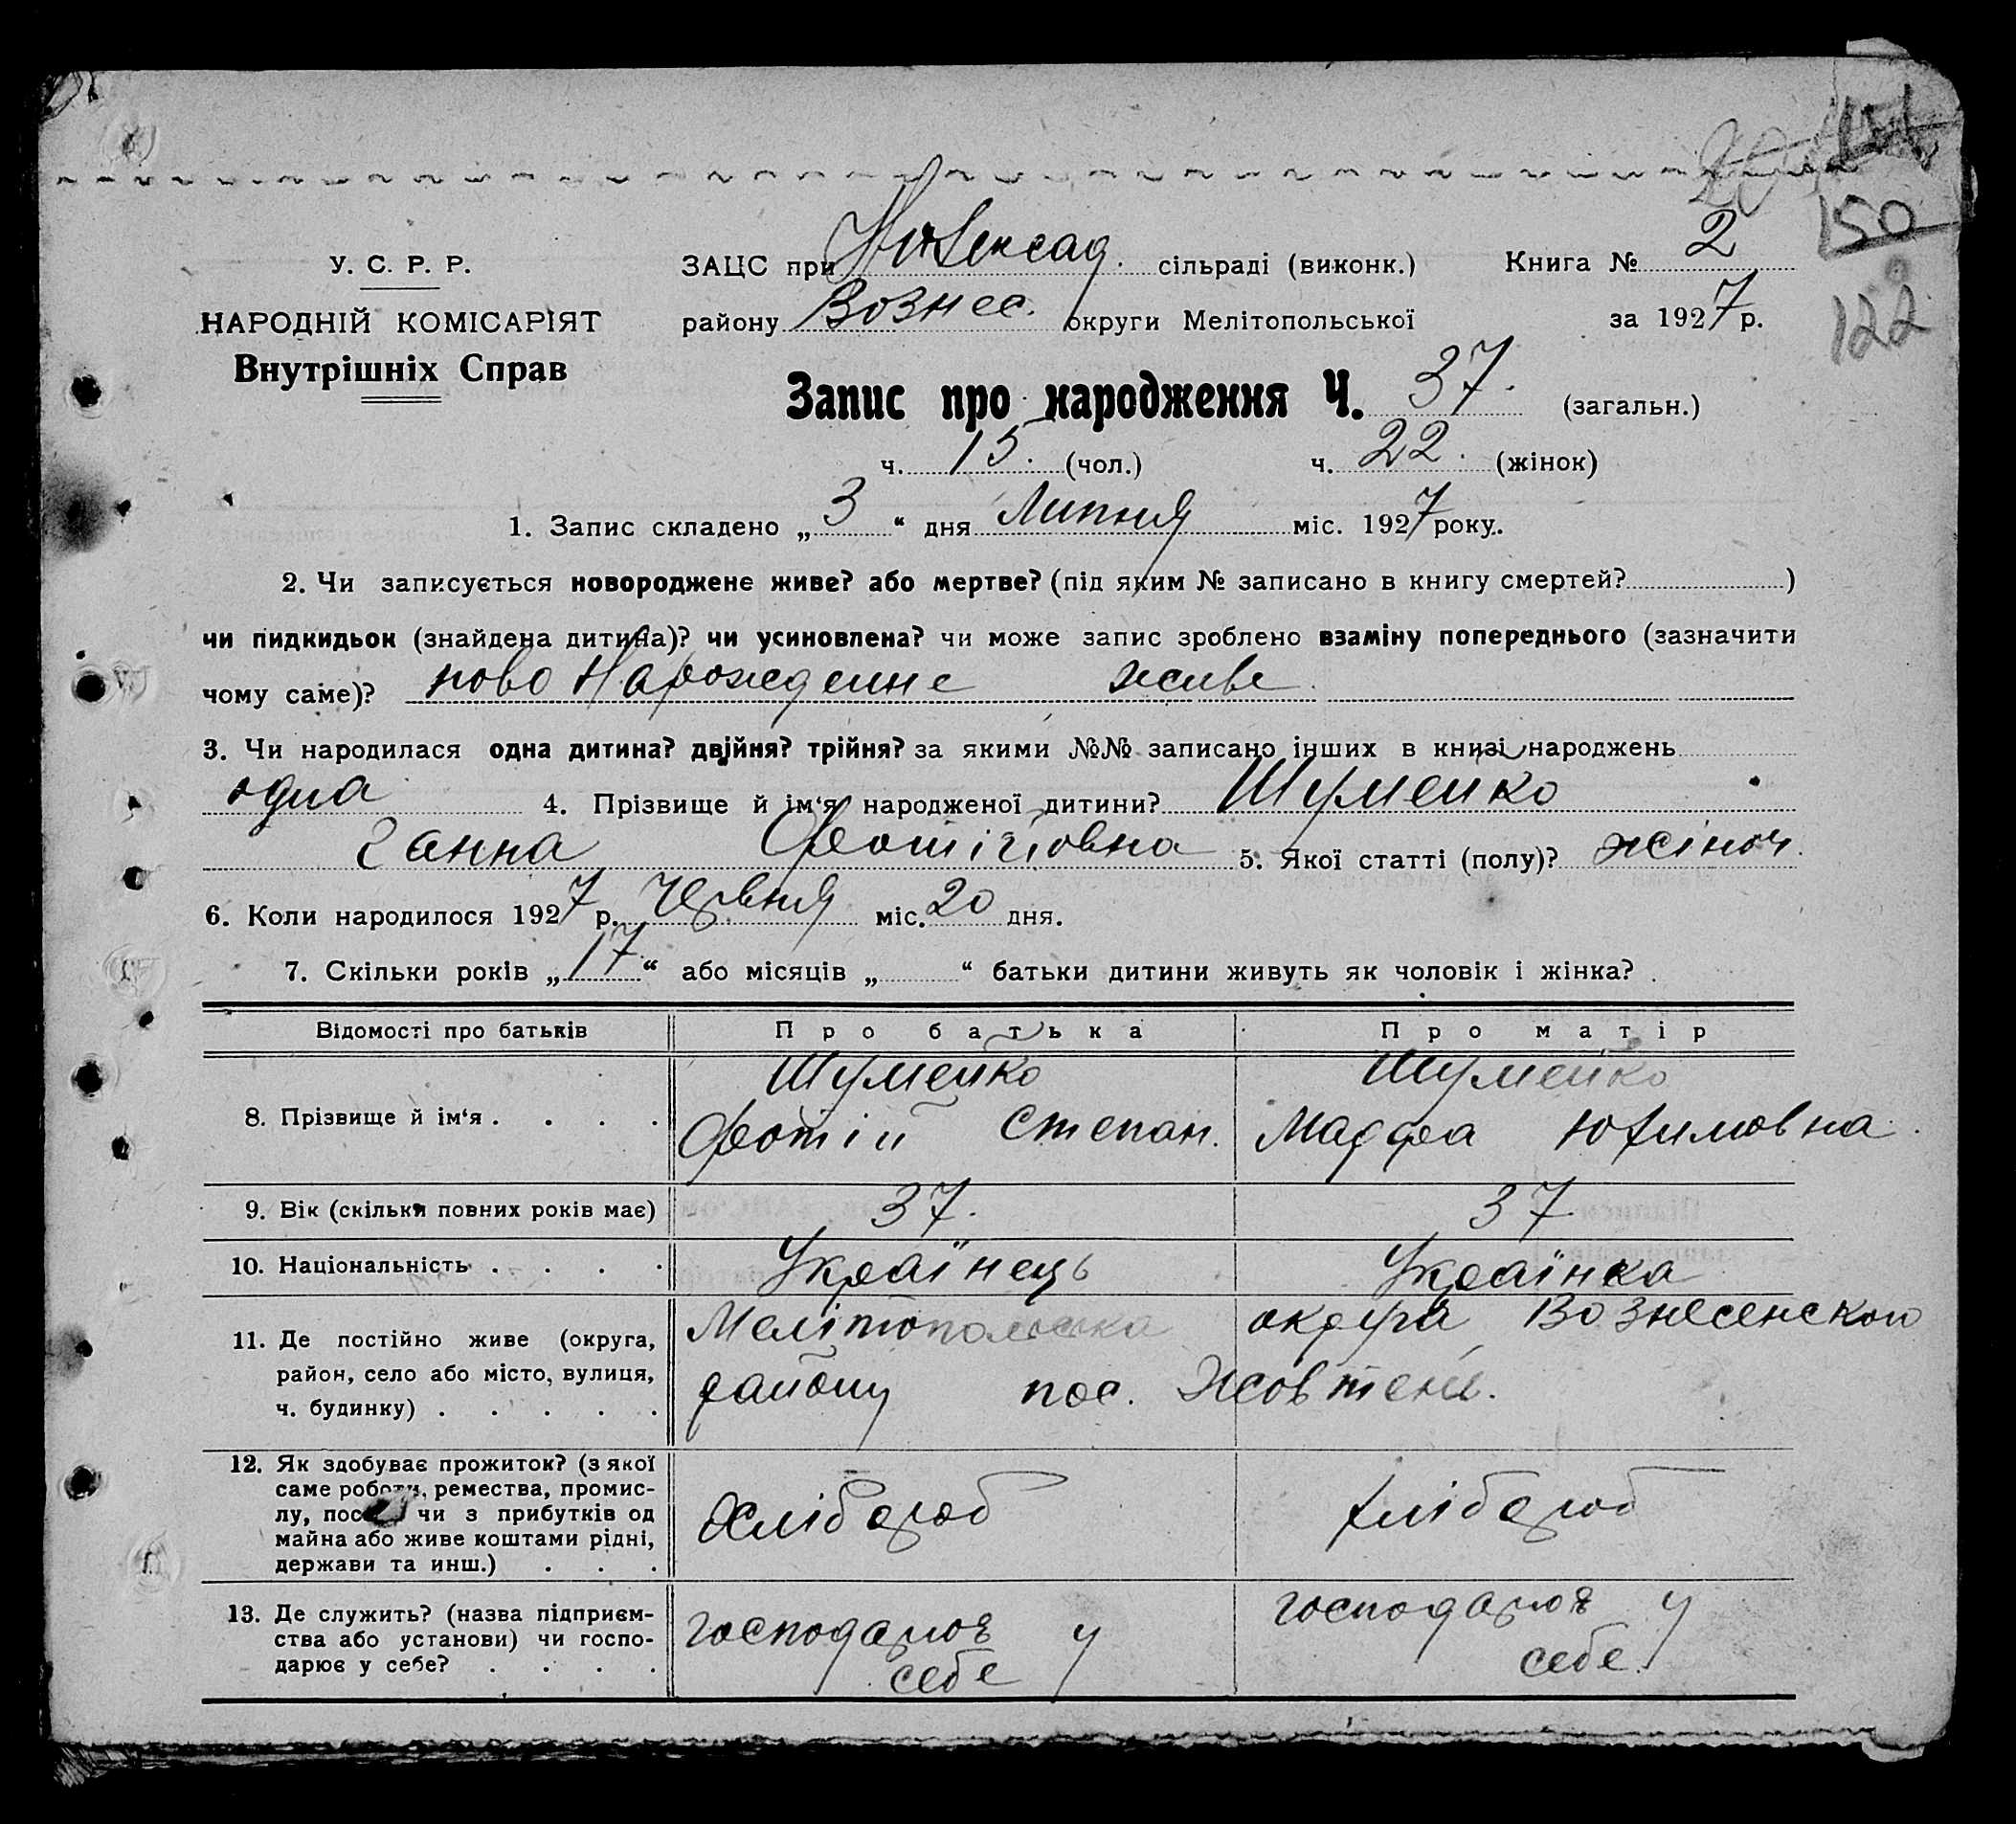 150
122
У. С. Р. Р.
НАРОДНІЙ КОМІСАРІЯТ
Внутрішніх Справ
ЗАЦС при сільраді (виконк.) Книга № 2
району Вознес. округи Мелітопольської за 1927 р.
Запис про народження Ч. 37. (загальн.)
ч. 15. (чол.) ч. 22. (жінок)
1. Запис складено „ 3 “ дня Липня міс. 1927 року.
2. Чи записується новороджене живе? або мертве? (під яким № записано в книгу смертей? )
чи пидкидьок (знайдена дитина)? чи усиновлена? чи може запис зроблено взаміну попереднього (зазначити
чому саме)? ново Нарожденне живе.
3. Чи народилася одна дитина? двійня? трійня? за якими №№ записано інших в книзі народжень
одна 4. Прізвище й ім‘я народженої дитини? Шумейко
Ганна Фотіїовна 5. Якої статті (полу)? жіноч.
6. Коли народилося 1927 р. Червня міс. 20 дня.
7. Скільки років „ 17 “ або місяців „ “ батьки дитини живуть як чоловік і жінка?
Відомості про батьків Про батька Про матір
8. Прізвище й ім‘я . . . . Шумейко Фотій Степан. Шумейко Марфа Юхимовна.
9. Вік (скільки повних років має) 37. 37
10. Національність . . . . Українець Українка
11. Де постійно живе (округа, Мелітопольська округа Вознесенского
район, село або місто, вулиця, району пос. Жовтень.
ч. будинку) . . . . .
12. Як здобуває прожиток? (з якої
саме роботи, ремества, промис-
лу, чи з прибутків од Хлібороб хлібороб
майна або живе коштами рідні,
держави та инш.) . . .
13. Де служить? (назва підприєм-
ства або установи) чи госпо- господарює у себе господарює у себе.
дарює у себе? . . . .